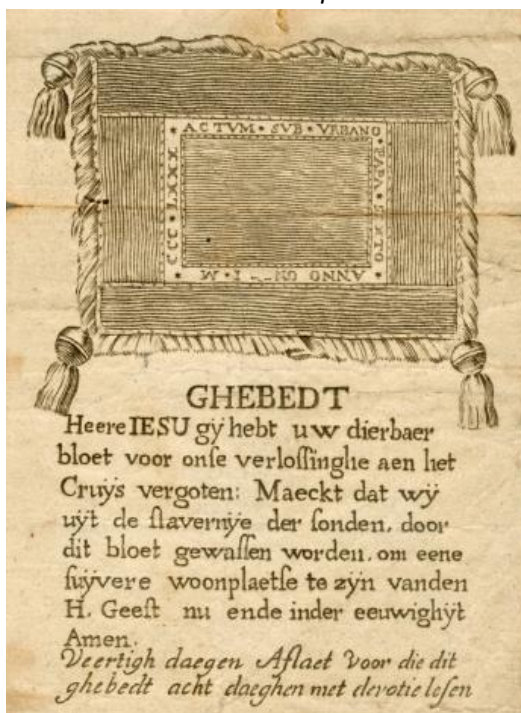 * ACTVM * SVB * VRBANO
* PAPA * SEXTO
* ANNO M
CCC * LXXX *
GHEBEDT
Heere IESU gÿ hebt uw dierbaer
bloet voor onſe verloſſinghe aen het
Cruÿs vergoten: Maeckt dat wÿ
uÿt de ſlavernÿe der ſonden, door
dit bloet gewaſſen worden, om eene
ſuÿvere woonplaetſe te zÿn vanden
H. Geeſt nu ende inder eeuwighÿt
Amen.
Veertigh daegen Aflaet voor die dit
ghebedt acht daeghen met devotie leſen